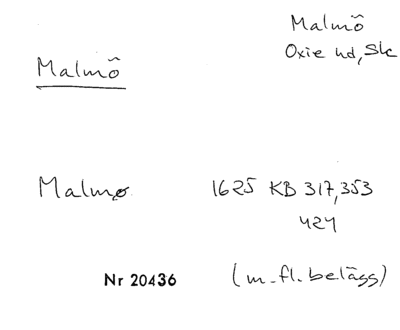 Malmö
Oxie hd, Sk
Malmö
Malmø 1625 KB 317,353
424
Nr 20436 (m. fl. belägg)